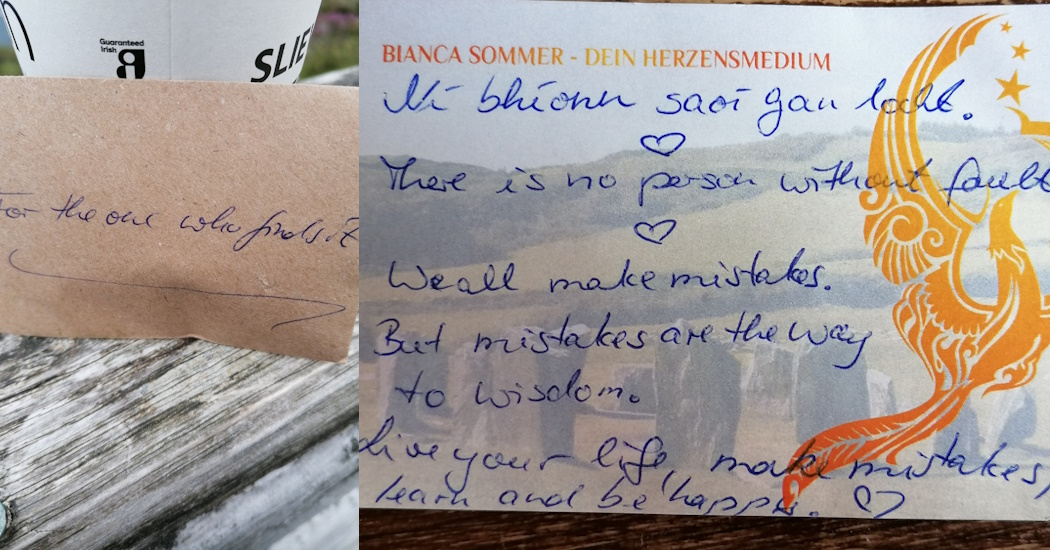 Guaranteed
Irish
SLIE
For the one who finds it
BIANCA SOMMER - DEIN HERZENSMEDIUM
Ní bhíonn saoi gan locht.
There is no person without fault
We all make mistakes.
But mistakes are the way
to wisdom.
Live your life, make mistakes,
learn and be happy.